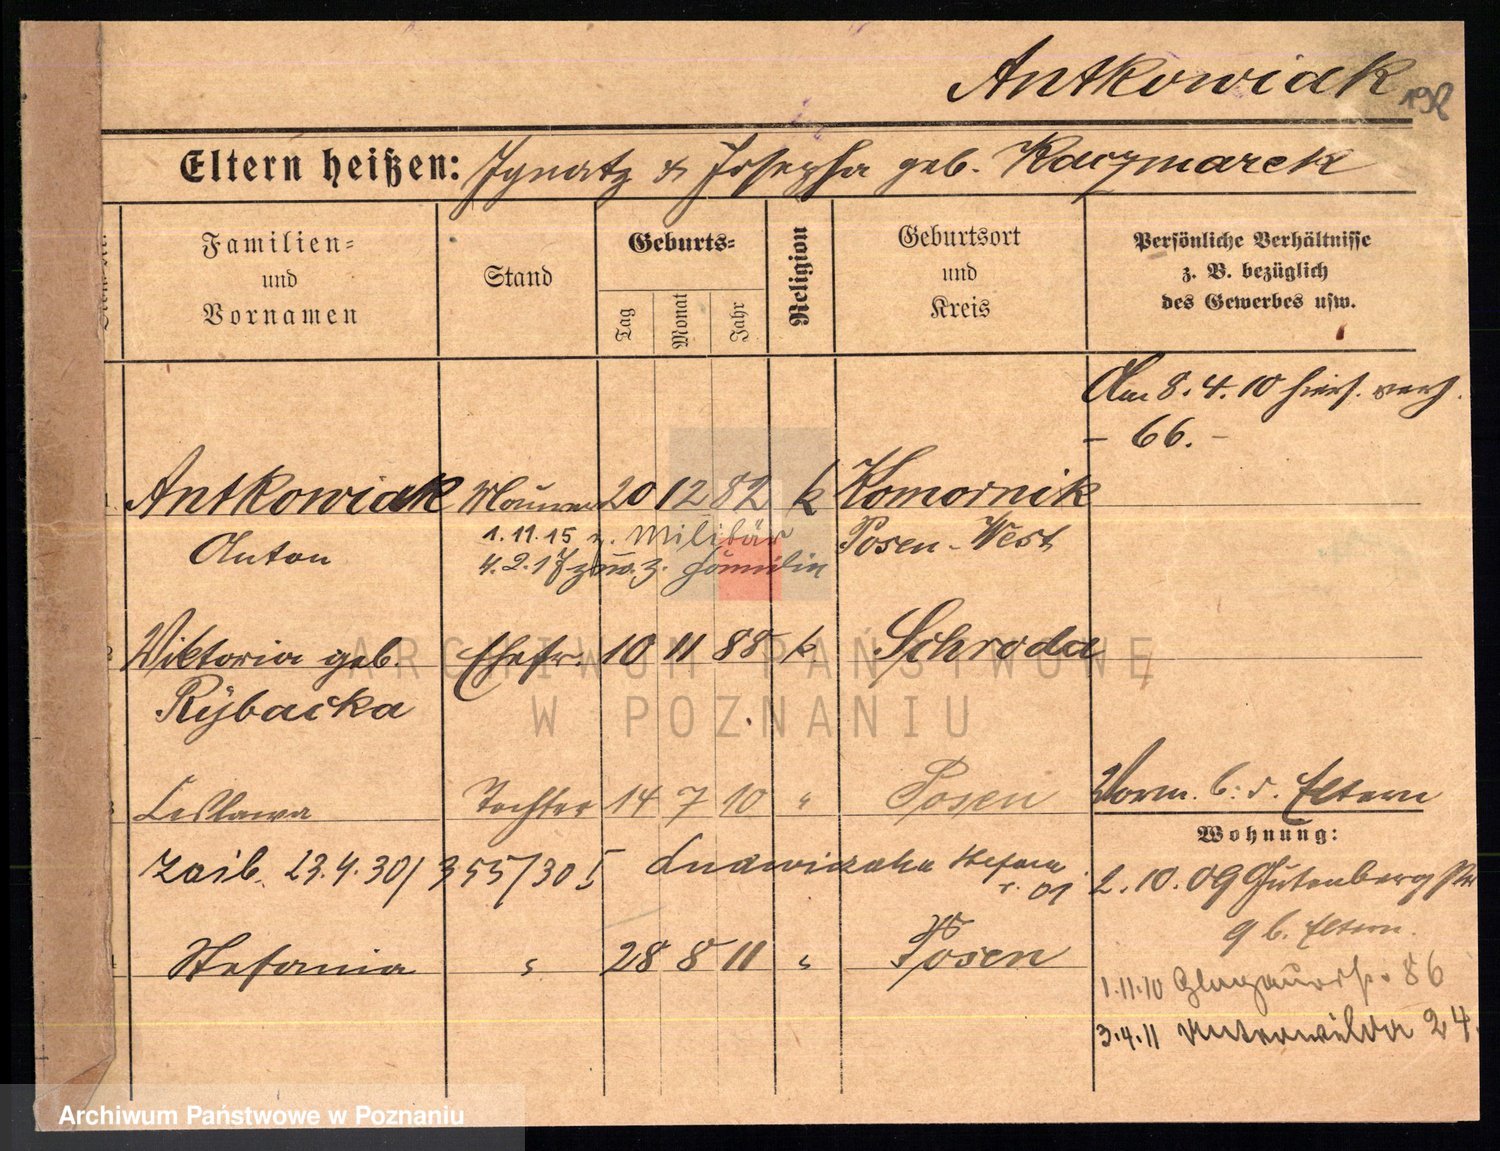 Antkowiak
198
Eltern heißen: Ignatz & Josepha geb. Kaczmarek
Familien-
und
Vornamen
Stand
Geburts-
Tag
Monat
Jahr
Religion
Geburtsort
und
Kreis
Persönliche Verhältnisse
z. B. bezüglich
des Gewerbes usw.
Am 8.4.10 hies. verh.
- 66. -
1 Antkowiak Maurer 20 12 82 k Komornik
Anton 1.11.15 z. Militär Posen-West
4.2.17 zur. z. Familie
2 Viktoria geb. Ehefr. 10 11 88 k Schroda
Rybacka
3 Leslawa Tochter 14 7 10 " Posen
Vorm. b. d. Eltern
Wohnung:
23.4.30/ 355/30
2.10.09 Gutenberg str
9 b. Eltern.
4 Stefania " 28 8 11 " Posen
1.11.10 Glogauerstr. 86
3.4.11 Unterwilda 24.
ARCHIWUM PAŃSTWOWE
W POZNANIU
Archiwum Państwowe w Poznaniu